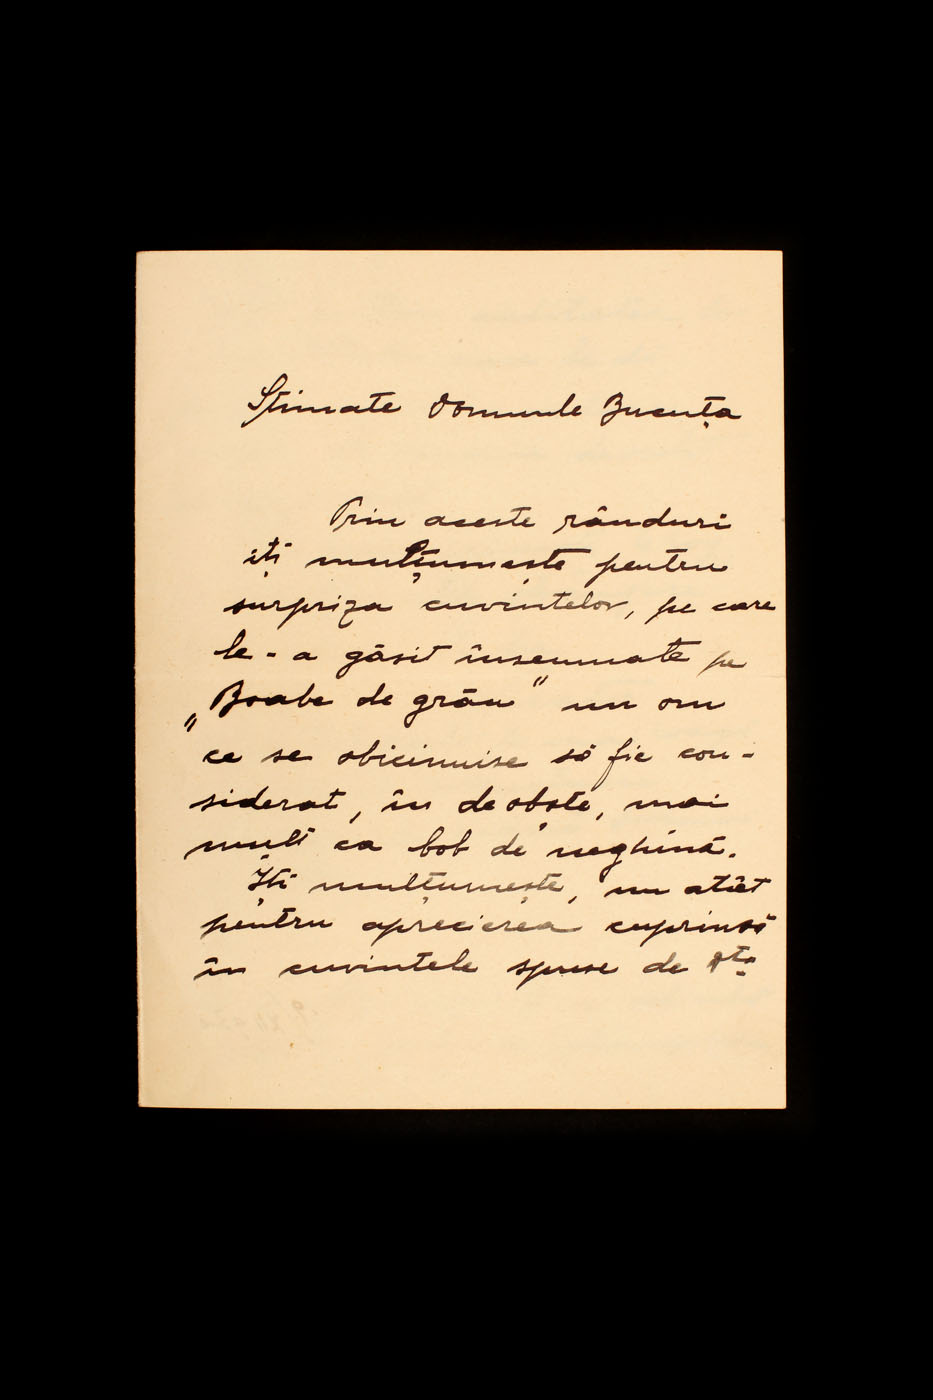 Stimate Domnule Bucuța
Prin aceste rânduri
iți mulțumește pentru
surpriza cuvintelor, pe care
le-a găsit însemnate pe
„Boabe de grâu” un om
ce se obicinuise să fie con-
siderat, în deobște, mai
mult ca bob de neghină.
Iți mulțumește, nu atât
pentru aprecierea cuprinsă
în cuvintele spuse de Dta